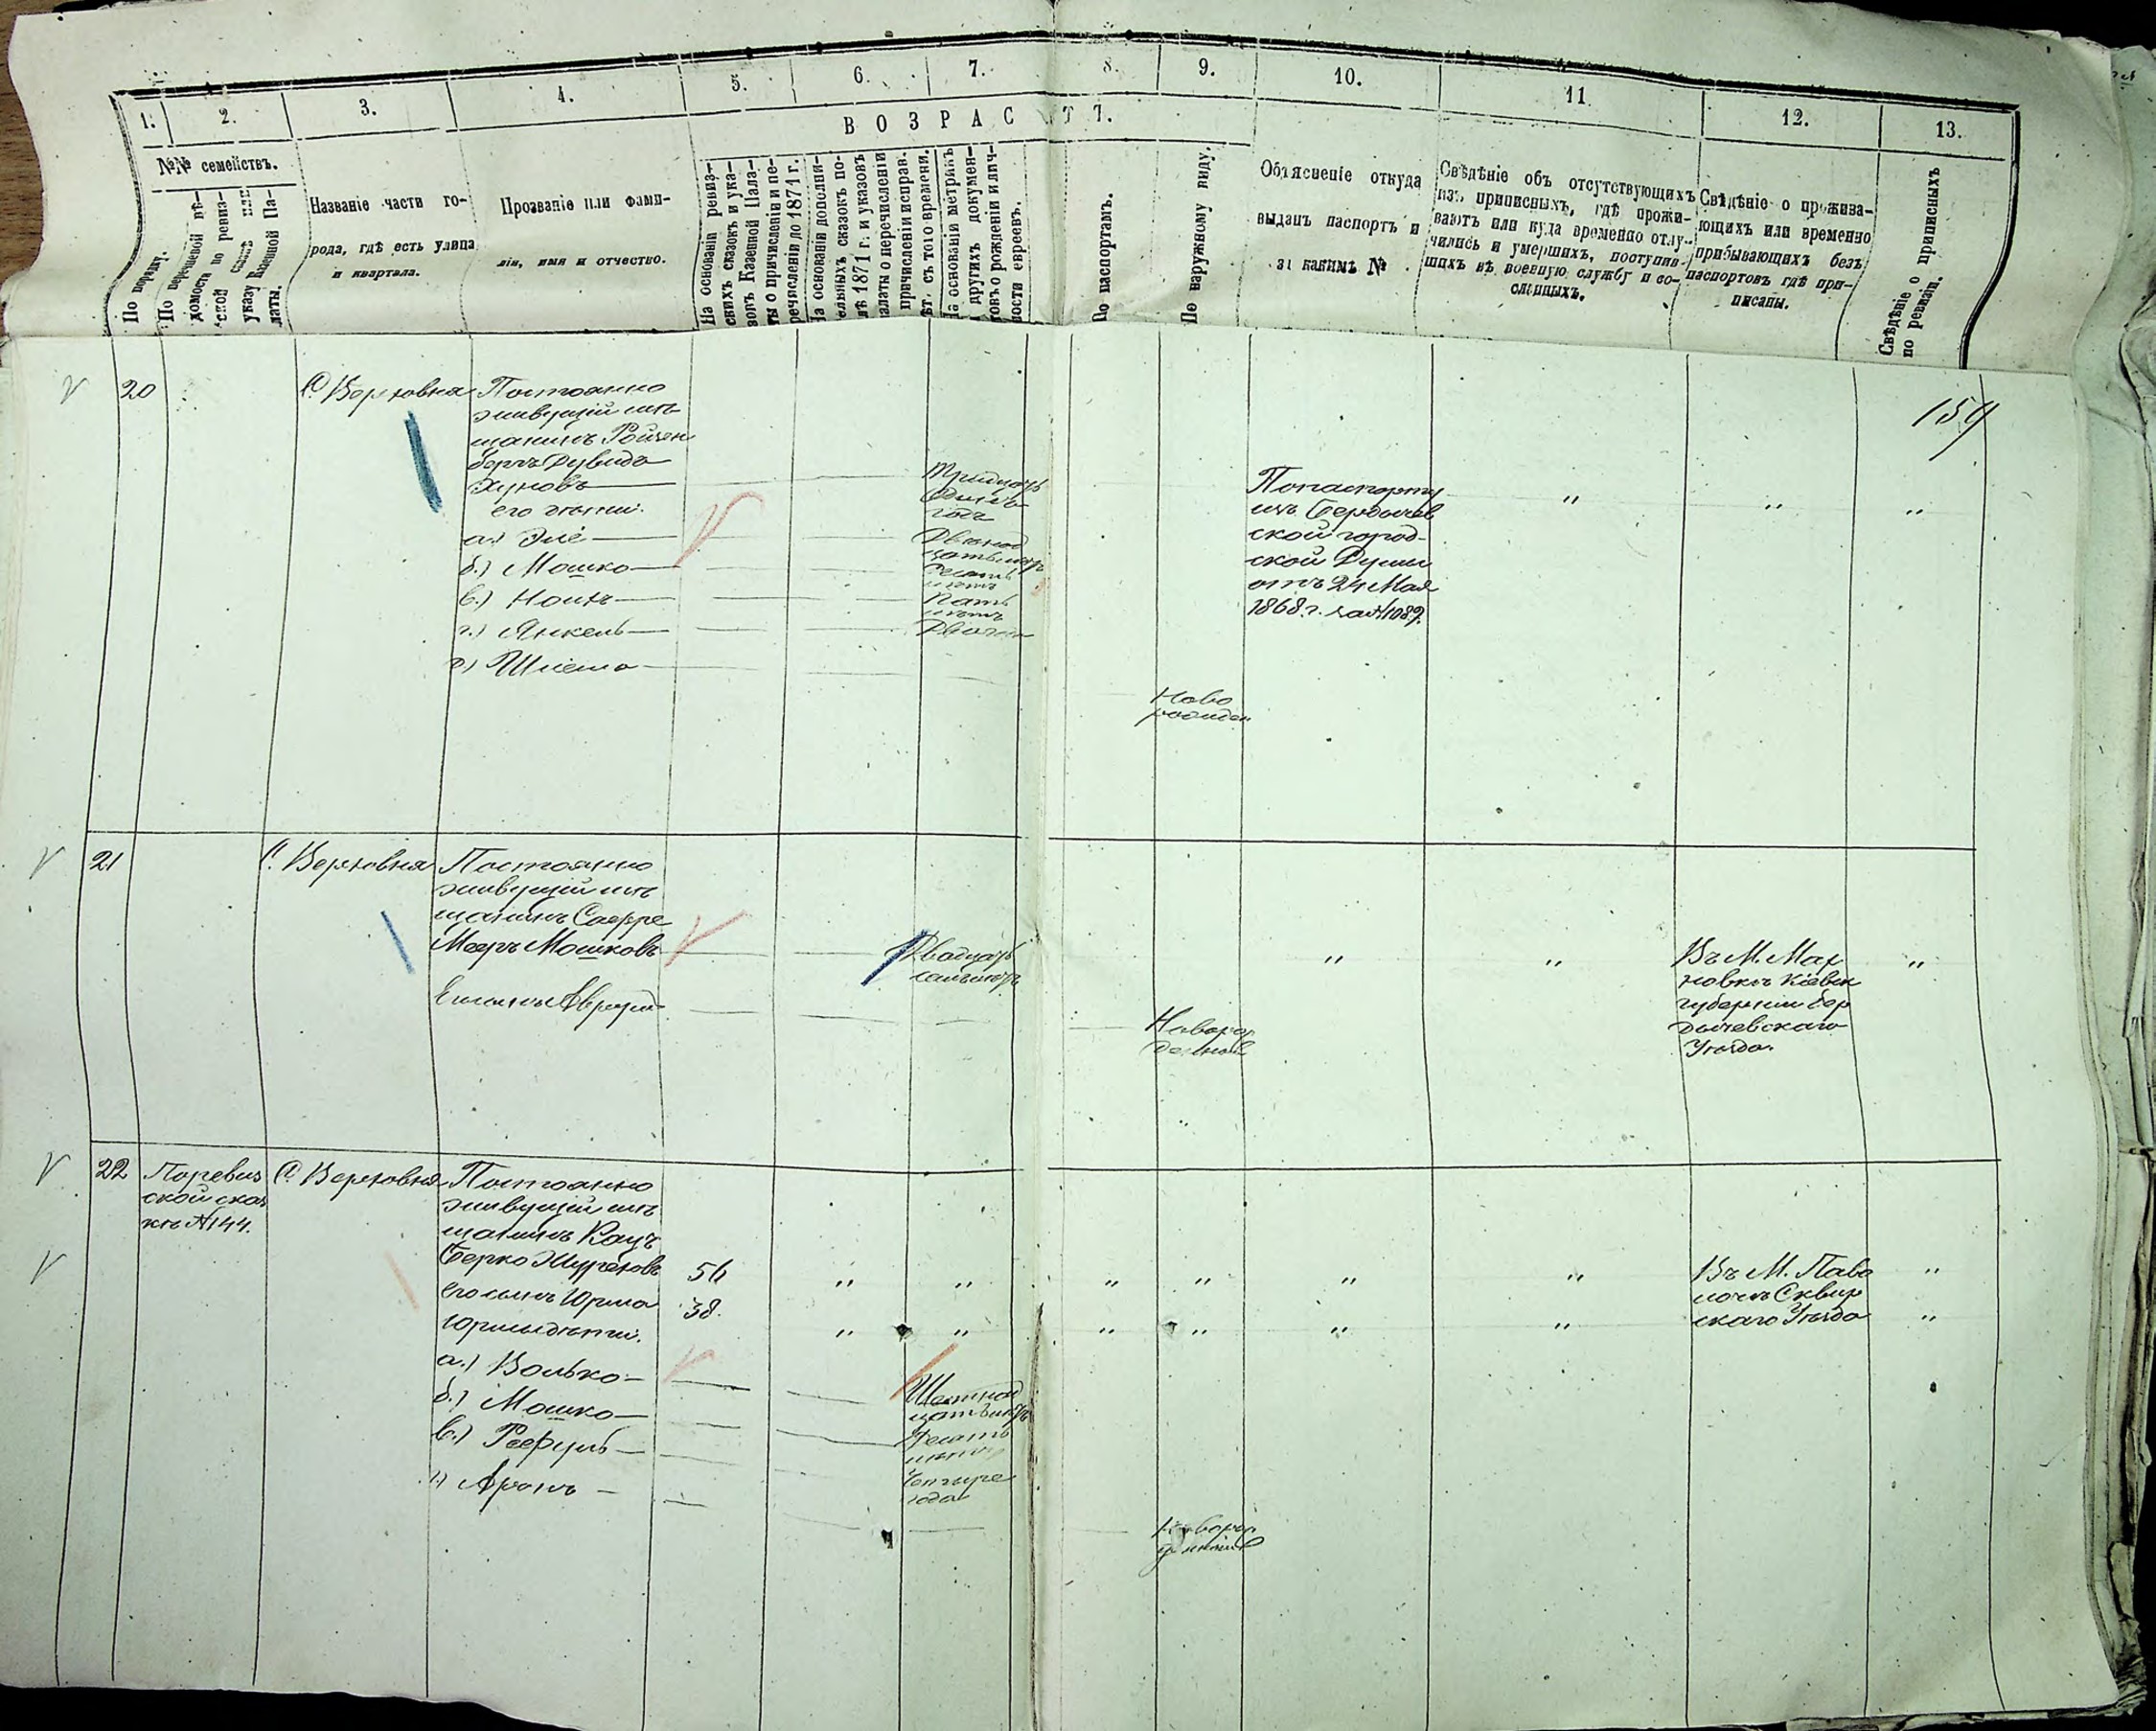 1.
2.
3.
4.
5.
6.
7.
8.
9.
10.
11.
12.
13.
ВОЗРАСТЪ.
№№ семействъ.
По порядку.
По перечневой вѣ-
домости по ревиз-
ской сказкѣ или
указу Казенной Па-
латы.
Названіе части го-
рода, гдѣ есть улица
и квартала.
Прозваніе или фами-
лія, имя и отчество.
На основаніи ревиз-
скихъ сказокъ и ука-
зовъ Казенной Пала-
ты о причисленіи и пе-
речисленіи до 1871 г.
На основаніи дополни-
тельныхъ сказокъ по-
слѣ 1871 г. и указовъ
Палаты о перечисленіи
причисленіи исправ.
лѣт. съ того времени.
На основаніи метрикъ
и другихъ докумен-
товъ о рожденіи и лич-
ности евреевъ.
По паспортамъ.
По наружному виду.
Объясненіе откуда
выданъ паспортъ и
за какимъ №
Свѣдѣніе объ отсутствующихъ
изъ приписныхъ, гдѣ прожи-
ваютъ или куда временно отлу-
чились и умершихъ, поступив-
шихъ въ военную службу и со-
сланныхъ.
Свѣдѣніе о прожива-
ющихъ или временно
прибывающихъ безъ
паспортовъ гдѣ при-
писаны.
Свѣдѣніе о приписныхъ
по ревизіи.
159
20
С. Верховня
Постоянно
живущій мѣ-
щанинъ Ройзен
бергъ Дувидъ
Хуновъ
его дѣти:
а.) Эле
б.) Мошко
в.)
г.) Янкель
д.) Шлема
Тридцать
Одинъ
годъ
Двѣнад
цать лѣтъ
Десять
лѣтъ
Пять
лѣтъ
Два года
Ново
рожден
По паспорту
изъ Бердичев
ской город-
ской Думы
отъ 24 Мая
1868 г. за №1089.
" " "
21
С. Верховня
Постоянно
живущій мѣ
щанинъ
Меръ Мошковъ
Двадцать
семь лѣтъ
Новорож
денный
" "
Въ М. Мах
новкѣ Кіевск
губерніи Бер
дичевскаго
Уѣзда.
"
22
По ревиз
ской сказ
кѣ №144.
С. Верховня
Постоянно
живущій мѣ
щанинъ Кацъ
Берко
56
его сынъ Юрма
38.
Юрмы дѣти:
а.) Волько
б.) Мошко
в.) Рефуль
г.) Аронъ
Шестнад
цать лѣтъ
Десять
лѣтъ
Четыре
года
Новорож
денный
" " " " " " "
Въ М. Паво
лочѣ Сквир
скаго Уѣзда
"
" " " " " " "
"